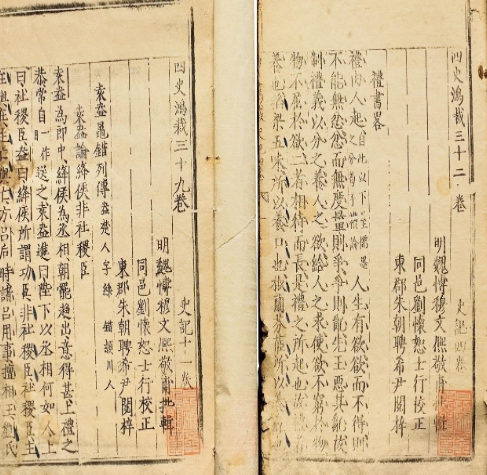 四史鴻裁三十二卷 史記四卷
明魏博穆文熙敬甫批輯
同邑劉懷恕士行校正
東郡朱朝聘希尹閱梓
禮書畧
禮由人起自此以下至儒墨之分皆荀子語人生有欲欲而不得則
不能無忿忿而無度量則爭爭則亂先王惡其亂故
制禮義以分之養人之欲給人之求使欲不窮於物
物不屈於欲二者相待而長是禮之所起也故禮者
養也稻粱五味所以養口也椒蘭芬茝所以養
四史鴻裁三十九卷 史記十一卷
明魏博穆文熙敬甫批輯
同邑劉懷恕士行校正
東郡朱朝聘希尹閱梓
袁盎鼂錯列傳盎楚人字絲 錯潁川人
袁盎論絳侯非社稷臣
袁盎為郎中絳侯為丞相朝罷趨出意得甚上禮之
恭常自一作目送之袁盎進曰陛下以丞相何如人上
曰社稷臣盎曰絳侯所謂功臣非社稷臣社稷臣主
在與在主亡與亡方呂后時諸呂用事擅相王劉氏